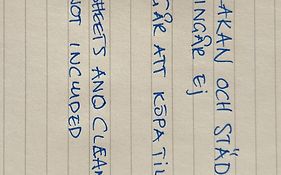 AKAN OCH STÄD
INGÅR EJ
GÅR ATT KÖPA TIL
SHEETS AND CLEAN
NOT INCLUDED